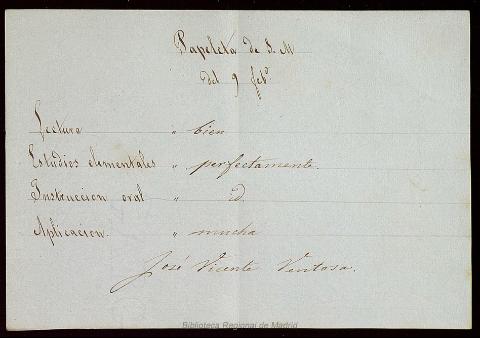 Papeleta de S. M
del 9 febº
Lectura " bien
Estudios elementales " perfectamente.
Instruccion oral " id.
Aplicacion. " mucha
José Vicente Ventosa.
Biblioteca Regional de Madrid